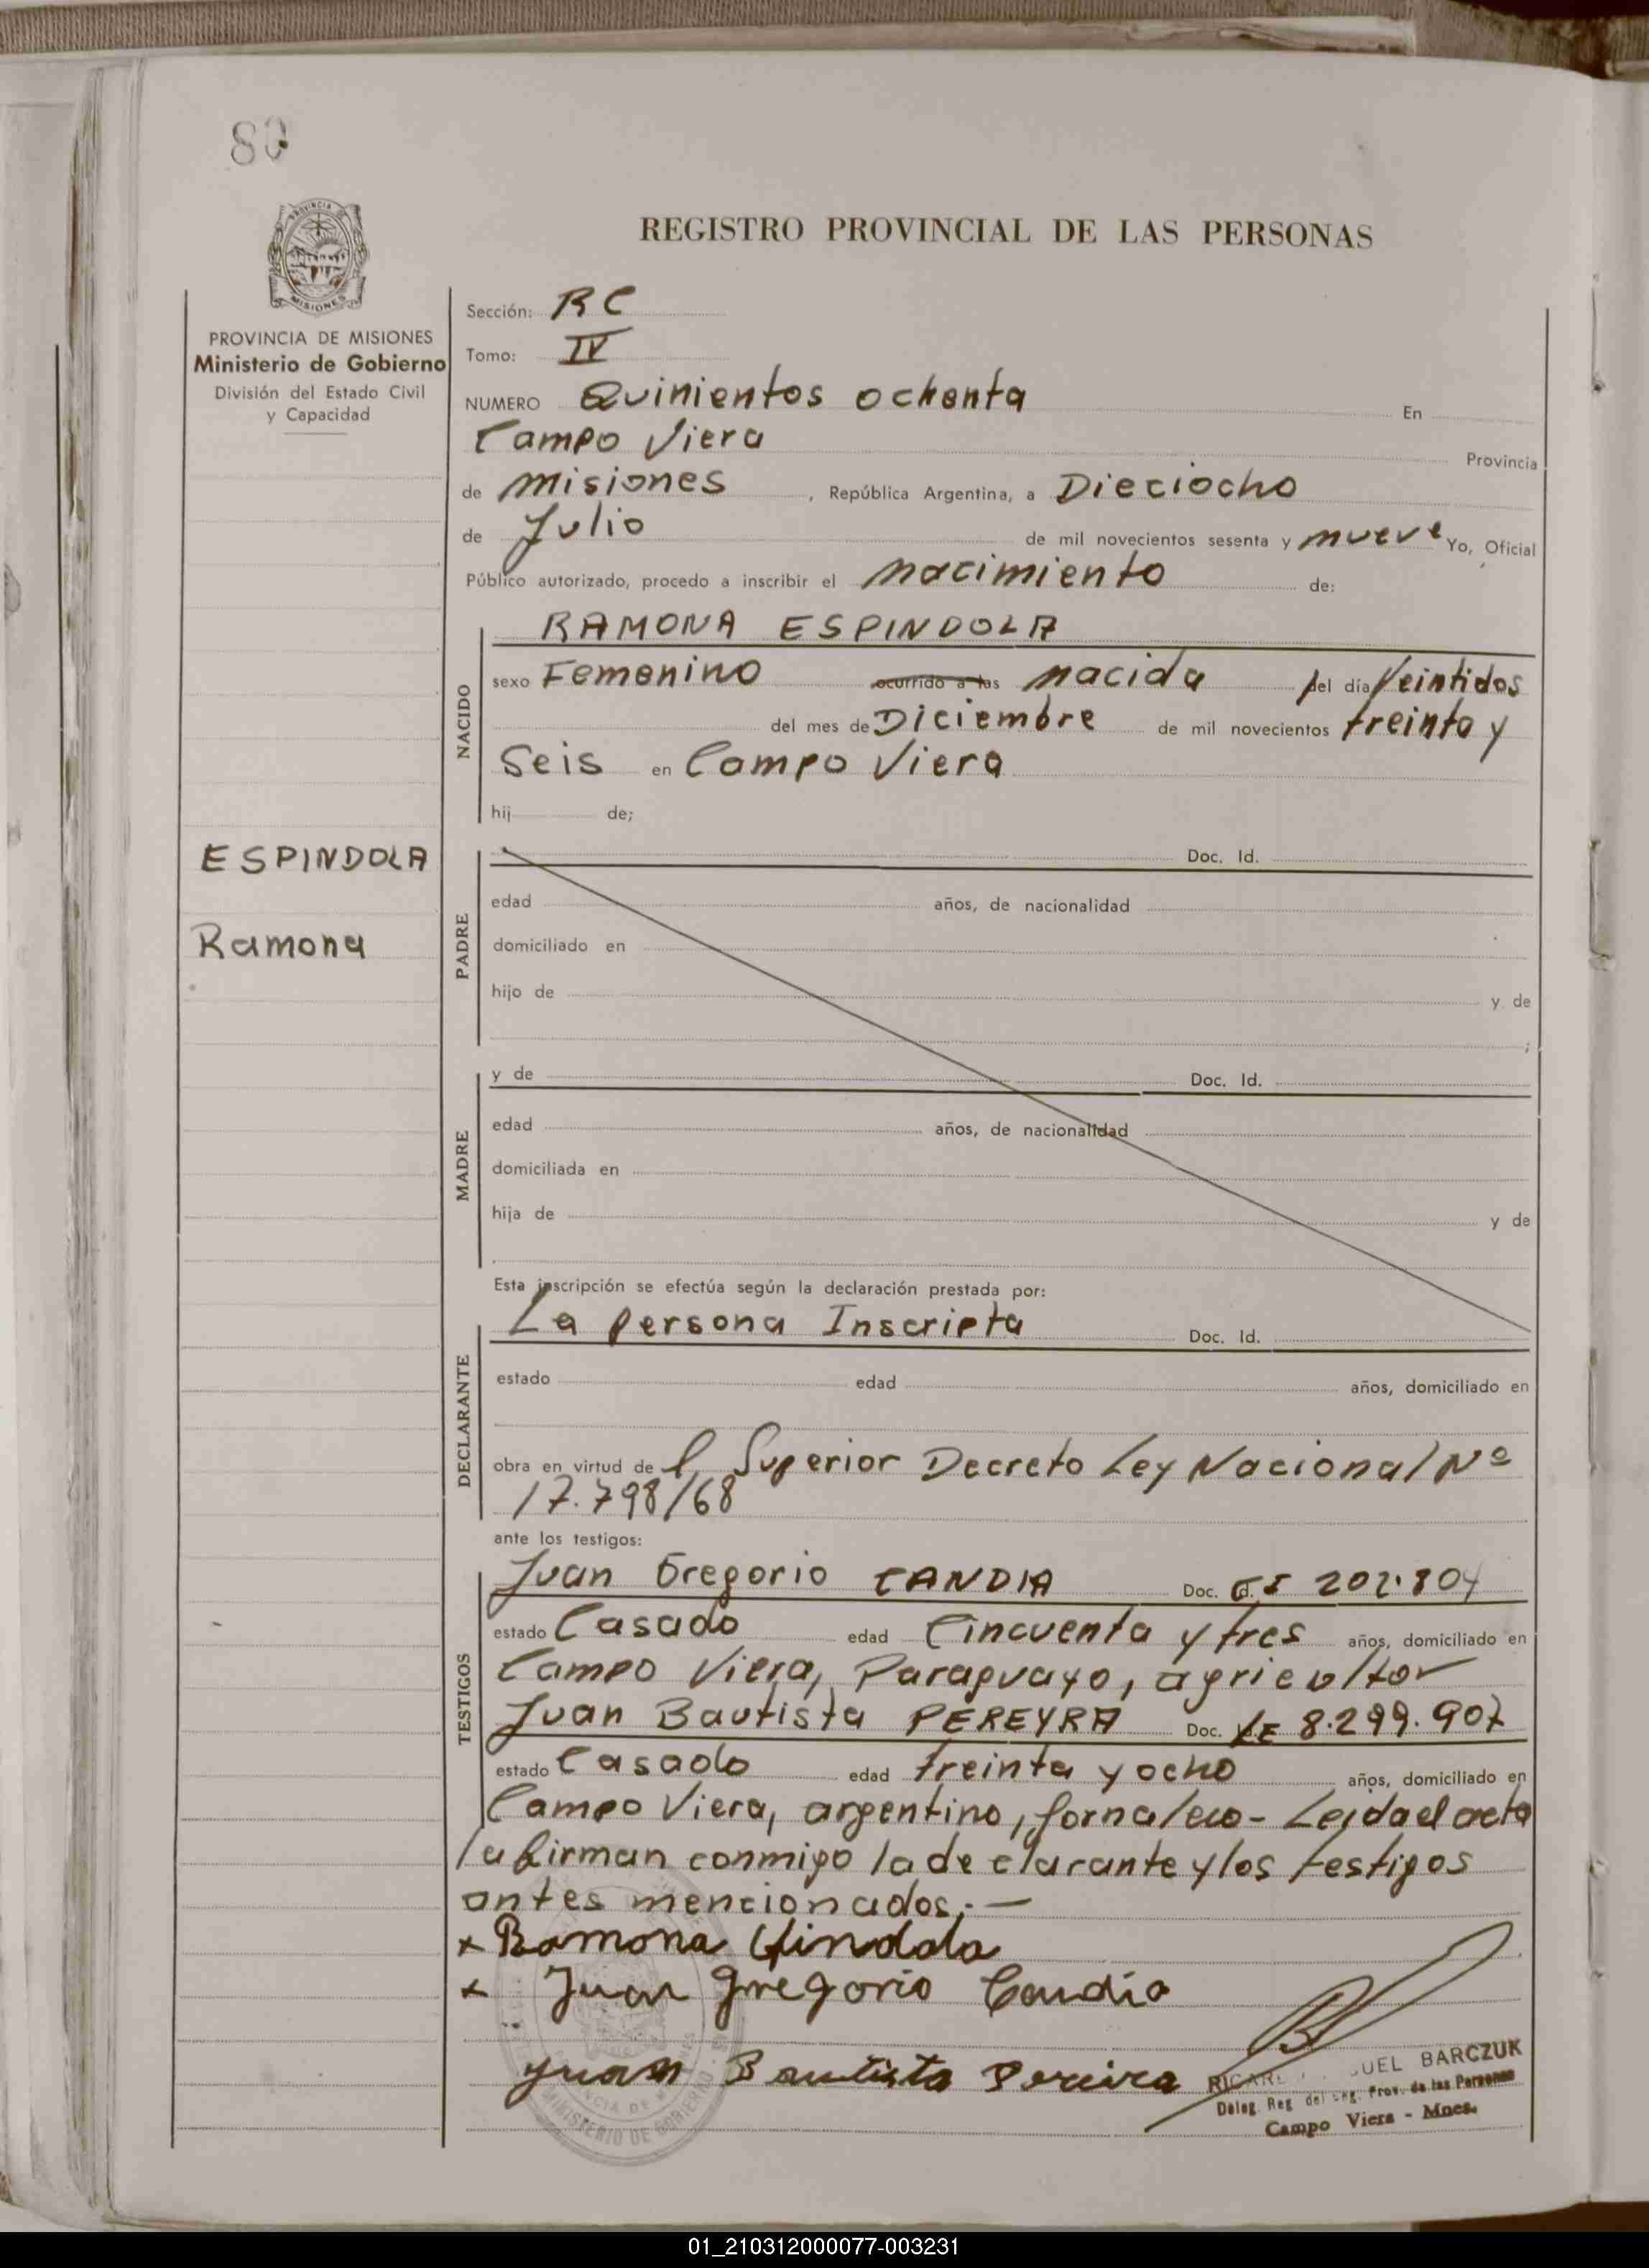 80
REGISTRO PROVINCIAL DE LAS PERSONAS
PROVINCIA DE MISIONES
Ministerio de Gobierno
División del Estado Civil
y Capacidad
ESPINDOLA
Ramona
Sección: RC
Tomo: IV
NUMERO Quinientos ochenta En
Campo Viera Provincia
de misiones , República Argentina, a Dieciocho
de Julio de mil novecientos sesenta y nueve Yo, Oficial
Público autorizado, procedo a inscribir el nacimiento de:
NACIDO
RAMONA ESPINDOLA
sexo Femenino ocurrido a las nacida del día Veintidos
del mes de Diciembre de mil novecientos treinta y
Seis en Campo Viera
hij de;
PADRE
Doc. Id.
edad años, de nacionalidad
domiciliado en
hijo de y de
;
MADRE
y de Doc. Id.
edad años, de nacionalidad
domiciliada en
hija de y de
Esta inscripción se efectúa según la declaración prestada por:
DECLARANTE
La persona Inscripta Doc. Id.
estado edad años, domiciliado en
obra en virtud de l Superior Decreto Ley Nacional Nº
17.798/68
ante los testigos:
TESTIGOS
Juan Gregorio CANDIA Doc. CI 202.804
estado Casado edad Cincuenta y tres años, domiciliado en
Campo Viera, Paraguayo, agricultor
Juan Bautista PEREYRA Doc. LE 8.299.907
estado Casado edad treinta y ocho años, domiciliado en
Campo Viera, argentino, jornalero - Leida el acta
la firman conmigo la declarante y los testigos
antes mencionados.-
x Ramona
x Juan Gregorio Candia
Juan Bautista Pereira
UEL BARCZUK
Deleg. Reg. del Prov. de las Personas
Campo Viera - Mnes.
MINISTERIO DE GOBIERNO
01_210312000077-003231